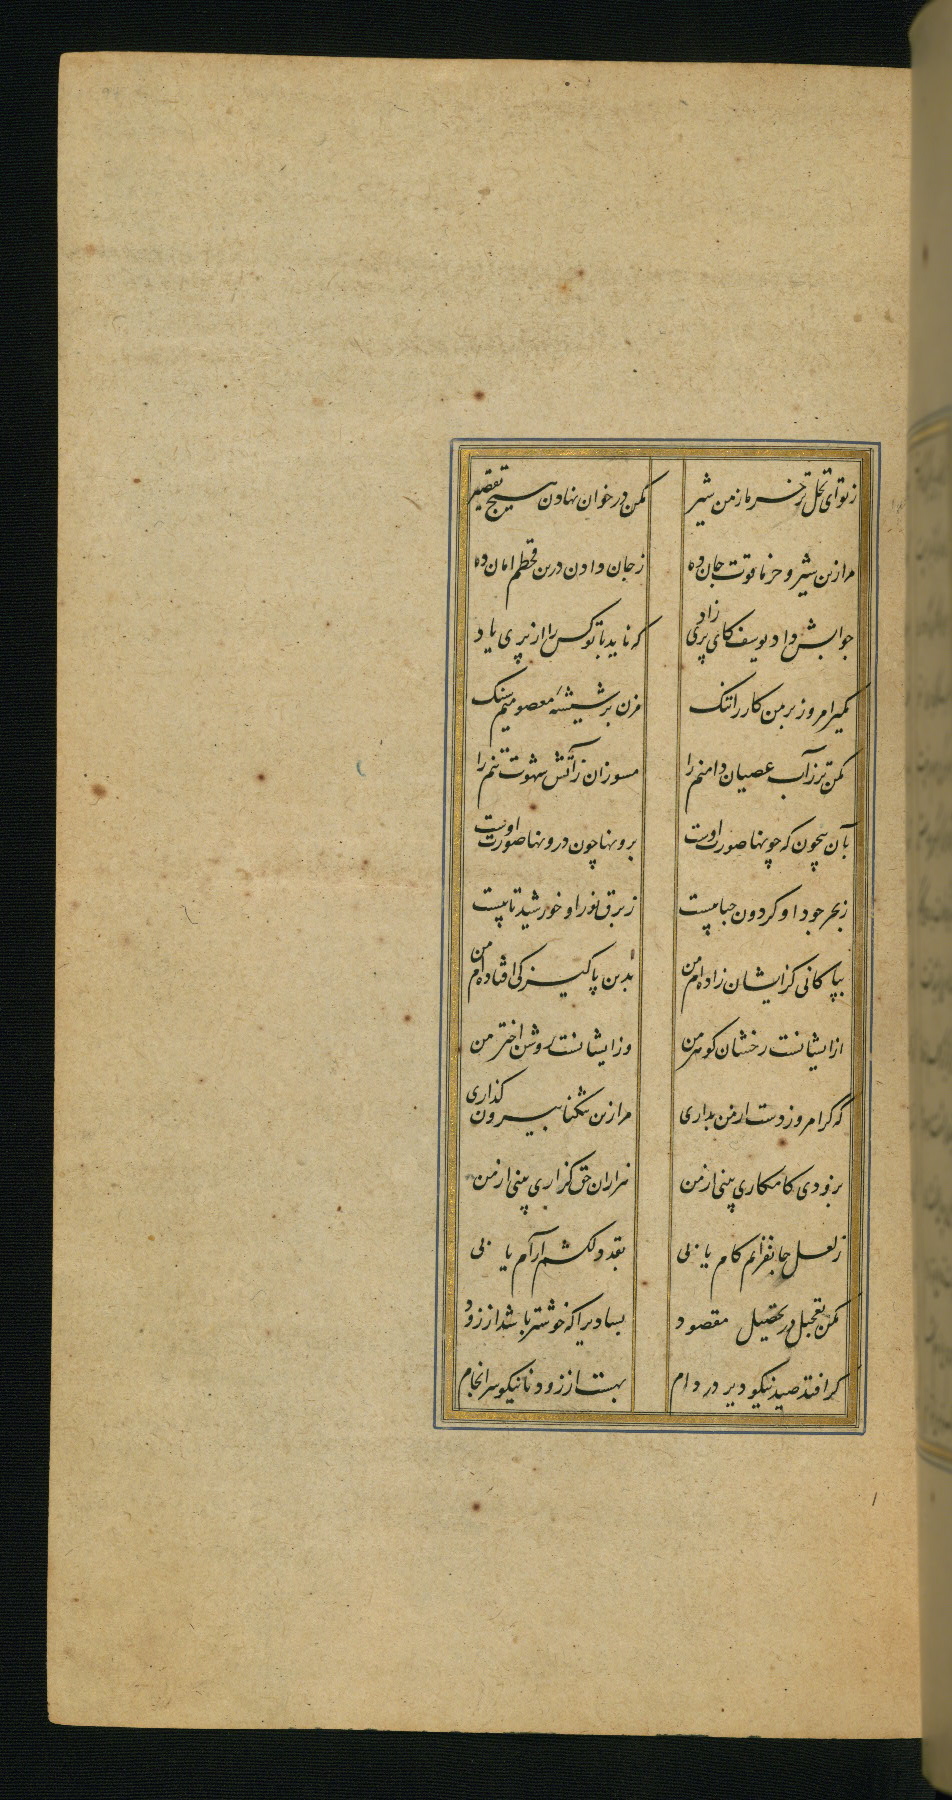 ز تو ای نخل تر خرما ز من شیر مکن در خوان نهادن هیچ تقصیر
مرا زین شیر و خرما قوت جان ده ز جان دادن درین قحطم امان ده
جوابش داد یوسف کای پری زاد که ناید با تو کس را از پری یاد
مکیر امروز بر من کار را تنک مزن بر شیشهٔ معصومیم سنک
مکن تر ز آب عصیان دامنم را مسوزان ز آتش شهوت تنم را
بآن بیچون که چونها صورت اوست برونها چون درونها صورت اوست
ز بحر جود او کردون حبابیست ز برق نور او خورشید تابیست
بپاکانی کز ایشان زاده‌ام من بدین پاکیزکی افتاده‌ام من
از ایشانست رخشان کوهر من وز ایشانست روشن اختر من
که کر امروز دست از من بداری مرا زین تنکنا بیرون کذاری
بزودی کامکاری بینی از من هزاران حق کزاری بینی از من
ز لعل جانفزایم کام یابی بقد دلکشم آرام یابی
مکن تعجیل در تحصیل مقصود بسا دیرا که خوشتر باشد از زود
کر افتد صید نیکو دیر در دام بهست از زود نانیکو سرانجام